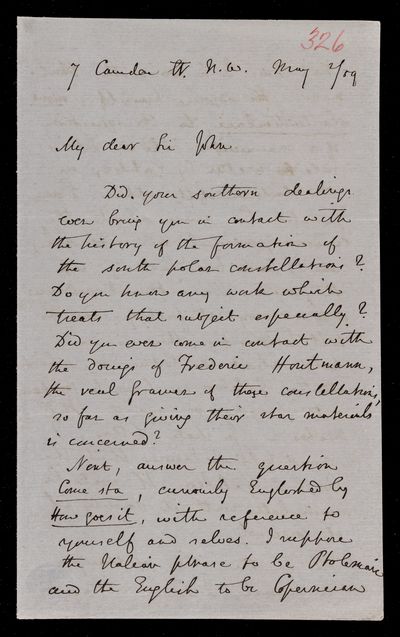 326
7 Camden St. N.W. May 2/59
My dear Sir John
Did your southern dealings
ever bring you in contact with
the history of the formation of
the south polar constellations?
Do you know any work which
treats that subject especially?
Did you ever come in contact with
the doings of Frederic Houtmann,
the real framer of these constellations,
so far as giving their star materials
is concerned?
Next, answer the question
Come sta, curiously Englished by
How goes it, with reference to
yourself and selves. I suppose
the Italian phrase to be Ptolemaic
and the English to be Copernican